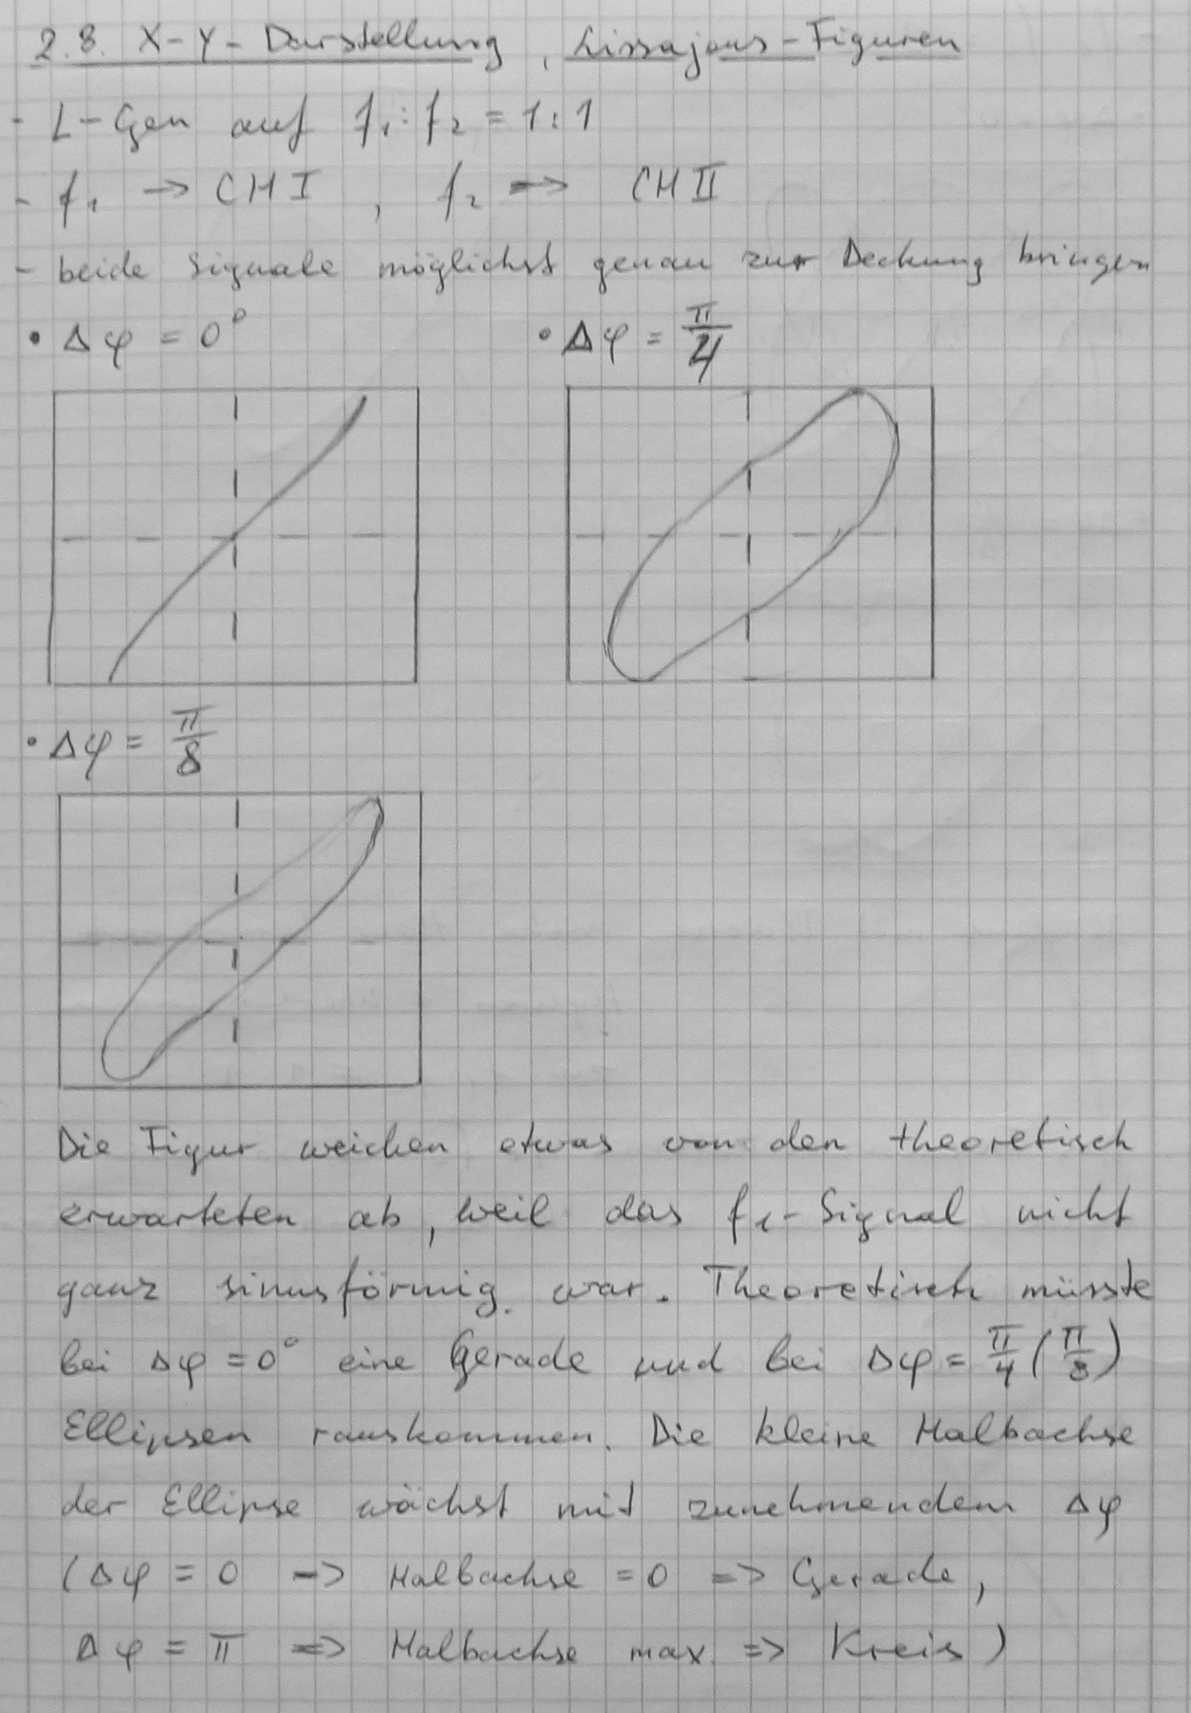 2.8. X-Y-Darstellung, Lissajous-Figuren
- L-Gen auf f₁:f₂ = 1:1
- f₁ → CH I , f₂ → CH II
- beide Signale möglichst genau zur Deckung bringen
• Δφ = 0° • Δφ = π/4
• Δφ = π/8
Die Figur weichen etwas von den theoretisch
erwarteten ab, weil das f₁-Signal nicht
ganz sinusförmig war. Theoretisch müsste
bei Δφ = 0° eine Gerade und bei Δφ = π/4 (π/8)
Ellipsen rauskommen. Die kleine Halbachse
der Ellipse wächst mit zunehmendem Δφ
(Δφ = 0 -> Halbachse = 0 => Gerade,
Δφ = π => Halbachse max. => Kreis)